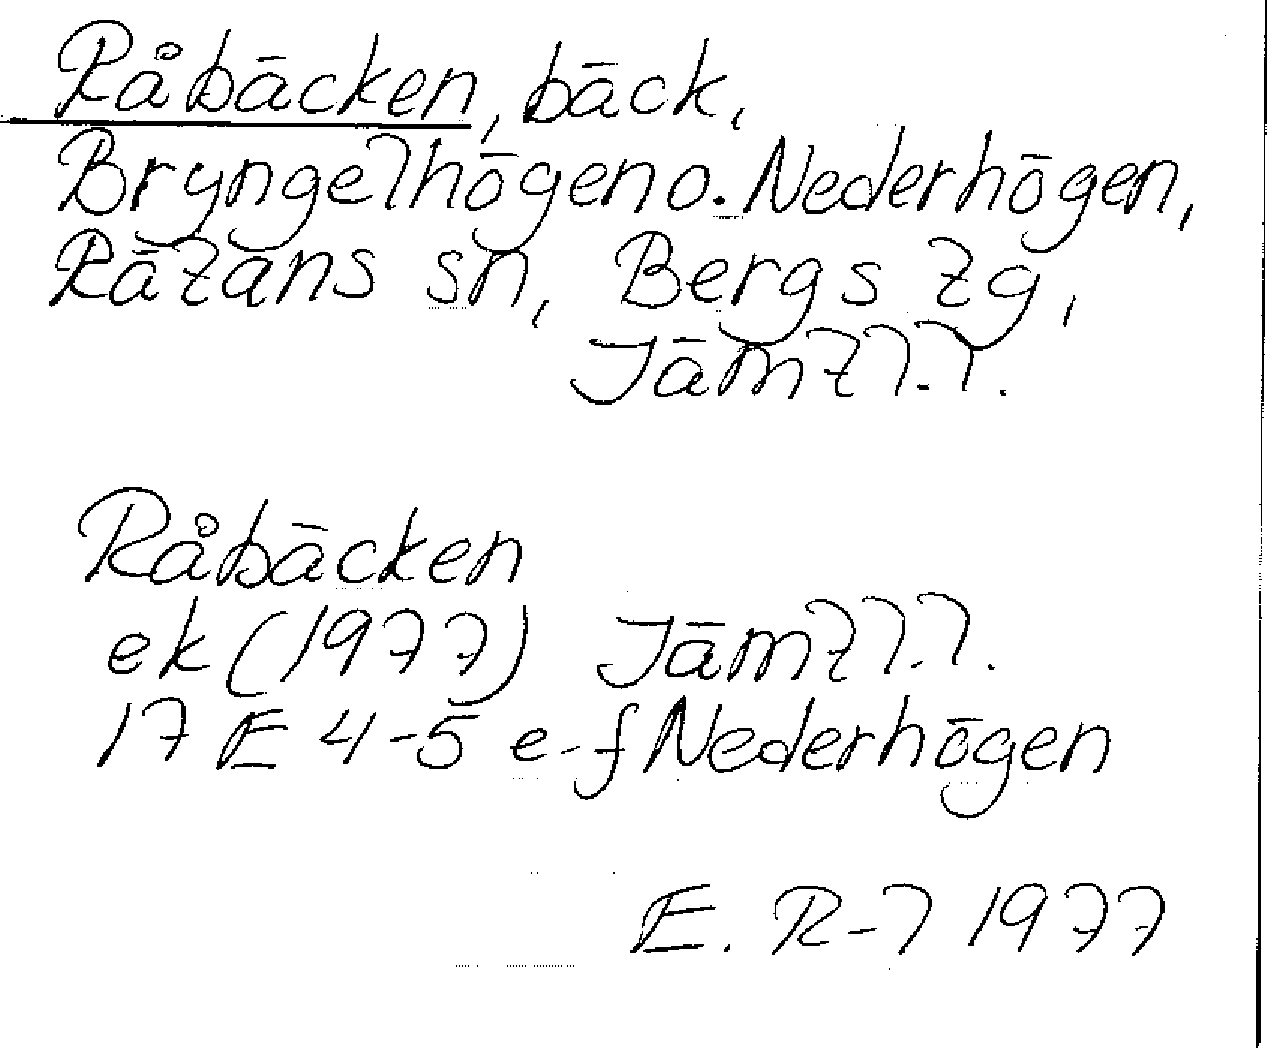 Råbäcken, bäck,
Bryngelhögen o. Nederhögen,
Rätans sn, Bergs tg,
Jämtl.l.
Råbäcken
ek (1977) Jämtl.l.
17 E 4-5 e-f Nederhögen
E. R-l 1977